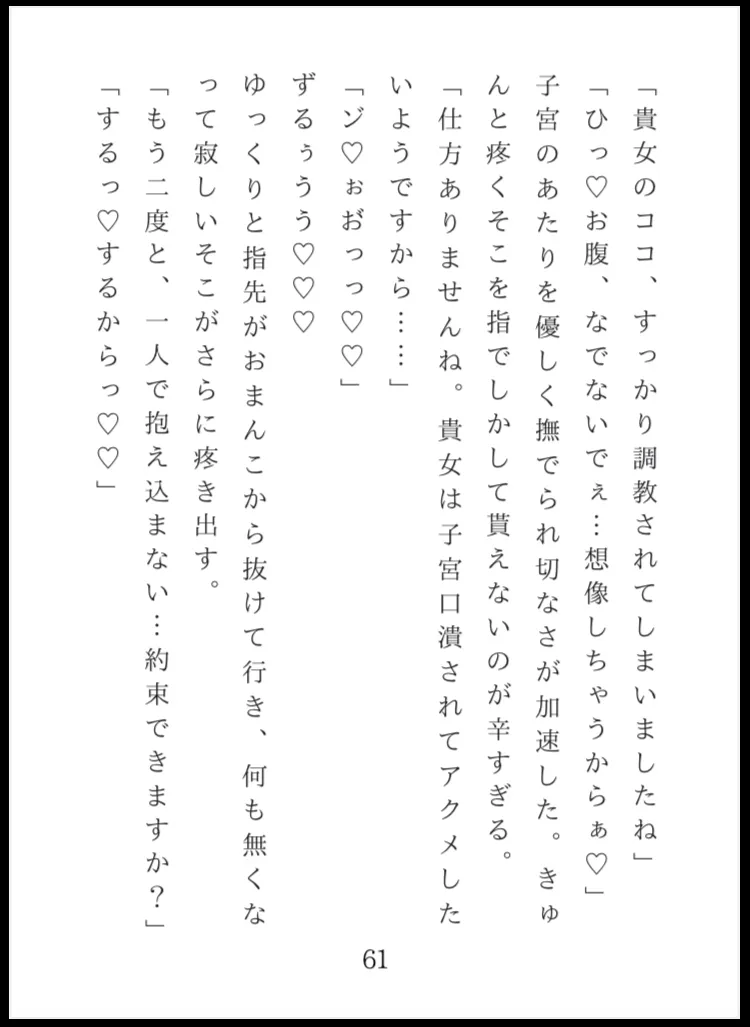 「貴女のココ、すっかり調教されてしまいましたね」
「ひっ♡お腹、なでないでぇ…想像しちゃうからぁ♡」
子宮のあたりを優しく撫でられ切なさが加速した。きゅ
んと疼くそこを指でしかして貰えないのが辛すぎる。
「仕方ありませんね。貴女は子宮口潰されてアクメした
いようですから……」
「ゾ♡ぉお゙っっ♡♡」
ずるぅうう♡♡♡
ゆっくりと指先がおまんこから抜けて行き、何も無くな
って寂しいそこがさらに疼き出す。
「もう二度と、一人で抱え込まない…約束できますか？」
「するっ♡するからっ♡♡」
61